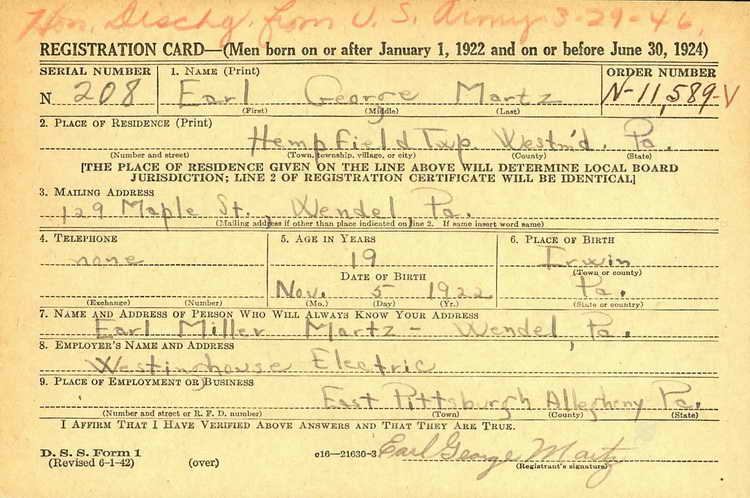 Hon. Dischg. from U. S. Army 3-29-46.
REGISTRATION CARD—(Men born on or after January 1, 1922 and on or before June 30, 1924)
SERIAL NUMBER 1. NAME (Print) ORDER NUMBER
N 208 Earl George Martz N-11,589-V
(First) (Middle) (Last)
2. PLACE OF RESIDENCE (Print)
Hempfield Twp. Westm'd. Pa.
(Number and street) (Town, township, village, or city) (County) (State)
[THE PLACE OF RESIDENCE GIVEN ON THE LINE ABOVE WILL DETERMINE LOCAL BOARD
JURISDICTION; LINE 2 OF REGISTRATION CERTIFICATE WILL BE IDENTICAL]
3. MAILING ADDRESS
129 Maple St., Wendel, Pa.
(Mailing address if other than place indicated on line 2. If same insert word same)
4. TELEPHONE 5. AGE IN YEARS 6. PLACE OF BIRTH
none 19 Irwin
(Town or county)
DATE OF BIRTH
Nov. 5 1922 Pa.
(Exchange) (Number) (Mo.) (Day) (Yr.) (State or country)
7. NAME AND ADDRESS OF PERSON WHO WILL ALWAYS KNOW YOUR ADDRESS
Earl Miller Martz - Wendel, Pa.
8. EMPLOYER'S NAME AND ADDRESS
Westinghouse Electric
9. PLACE OF EMPLOYMENT OR BUSINESS
East Pittsburgh Allegheny Pa.
(Number and street or R. F. D. number) (Town) (County) (State)
I AFFIRM THAT I HAVE VERIFIED ABOVE ANSWERS AND THAT THEY ARE TRUE.
D. S. S. Form 1
(Revised 6-1-42) (over) c16—21630-3 Earl George Martz
(Registrant's signature)